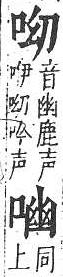 呦
音幽鹿声
吚呦吟声
同上